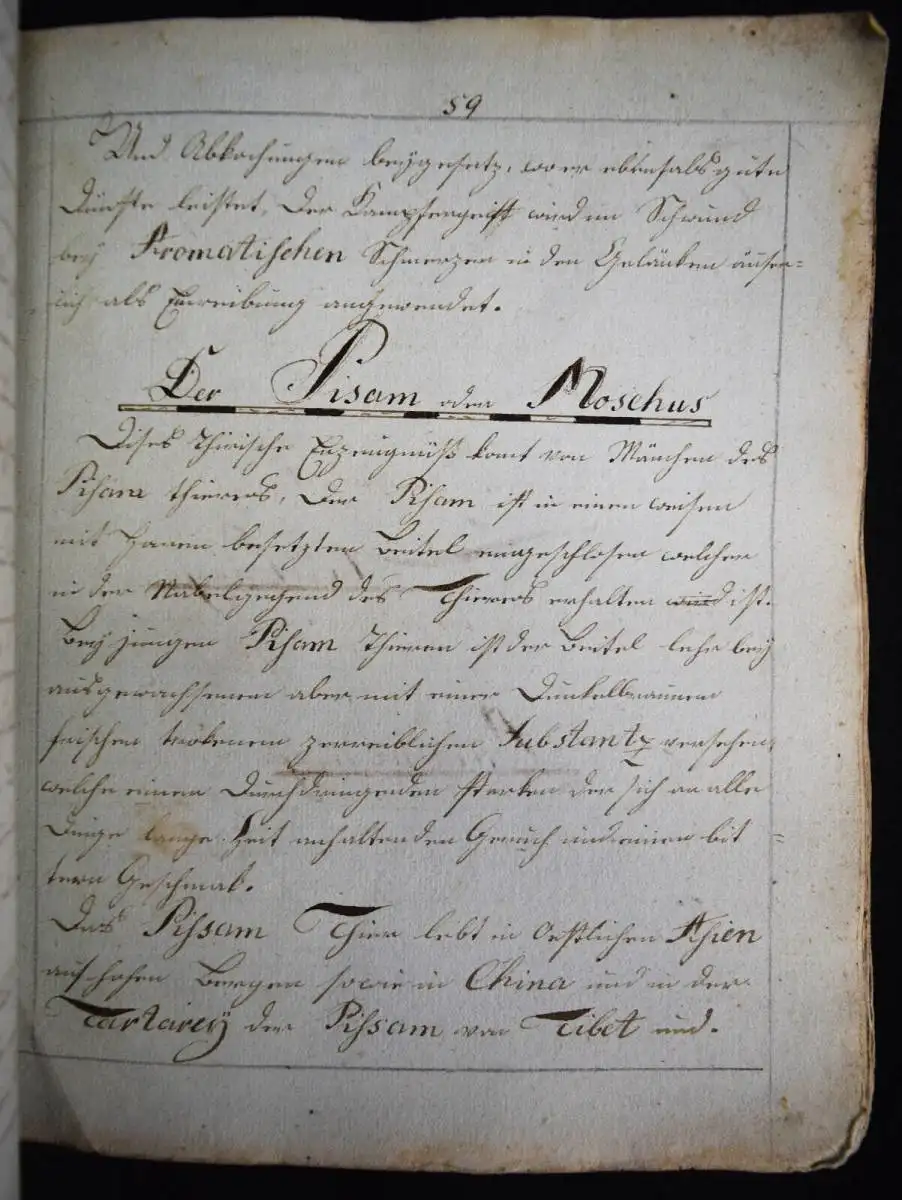 59
Und Abkochungen beygesetz, wo er ebenfals gute
Dinste leistet, Der Kampfergeist wird im Schwund
bey Aromatischen Schmerzen in den Geläncken äuser=
lich als Einreibung angewendet.
Der Pisam oder Moschus
Dises Thirische Erzeugnüß komt von Mänchen des
Pisam thieres, Der Pisam ist in einen weisen
mit Haren besetzten Beitel eingeschlosen welcher
in der Nabelgegend des Thieres erhalten wird ist.
Bey jungen Pisam Thieren ist der Beitel lehr bey
ausgewachsenen aber mit einer Dunckelbraunen
frischen trokenen zerreiblichen Substantz versehen,
welche einen Durchdringenden starken der sich an alle
Dinge lange Zeit anhaltenden Geruch und einen bit=
tern Geschmak.
Das Pissam Thier lebt in Oestlichen Asien
auf hohen Bergen so wie in China und in der
Tartarey der Pissam von Tibet und.